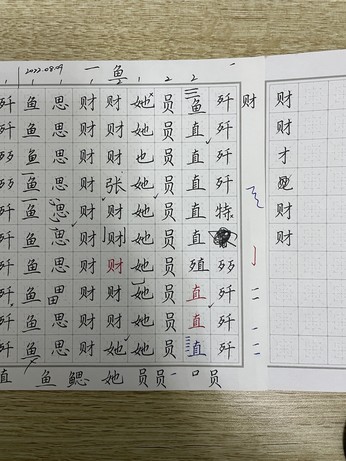 2022.08.09 一 鱼
歼 鱼 思 财 财 她 员 鱼 歼 财 财
歼 鱼 思 财 财 她 员 直 歼 财
歼 鱼 思 财 财 也 员 直 歼 才
歼 鱼 思 财 张 她 员 直 歼
歼 鱼 思 财 财 她 员 直 特 财
歼 鱼 思 财 财 她 员 直 财
歼 鱼 思 财 财 她 员 殖
歼 鱼 田 田 财 财 她 员 直 歼
歼 鱼 思 财 财 她 员 直 歼
歼 鱼 思 财 她 她 员 直 歼
直 鱼 鳃 她 员 员 一 口 员